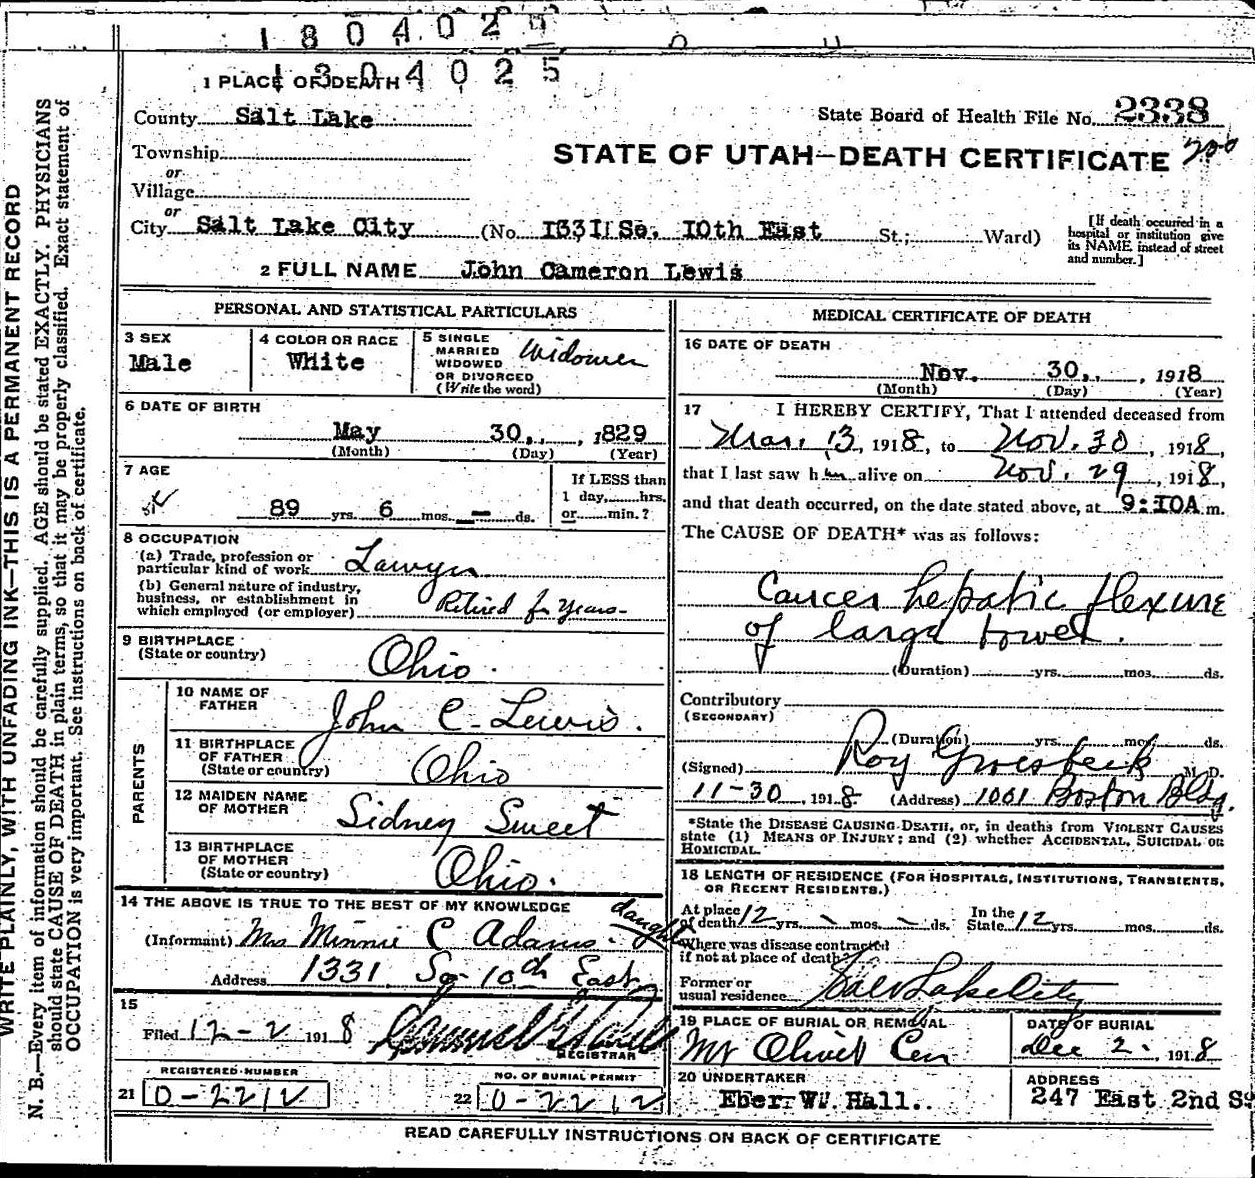 1 8 0 4 0 2
1 3 0 4 0 2 5
1 PLACE OF DEATH
County Salt Lake
State Board of Health File No. 2338
Township
or
Village
or
STATE OF UTAH—DEATH CERTIFICATE
City Salt Lake City (No. 1331 So. 10th East St.; Ward)
[If death occurred in a hospital or institution give its NAME instead of street and number.]
2 FULL NAME John Cameron Lewis
PERSONAL AND STATISTICAL PARTICULARS
3 SEX
Male
4 COLOR OR RACE
White
5 SINGLE
MARRIED
WIDOWED
OR DIVORCED
(Write the word)
Widower
6 DATE OF BIRTH
May 30, , 1829
(Month) (Day) (Year)
7 AGE
89 yrs. 6 mos. — ds.
If LESS than
1 day, hrs.
or min.?
8 OCCUPATION
(a) Trade, profession or
particular kind of work Lawyer
(b) General nature of industry,
business, or establishment in
which employed (or employer) Retired for years
9 BIRTHPLACE
(State or country) Ohio.
PARENTS
10 NAME OF
FATHER John C. Lewis.
11 BIRTHPLACE
OF FATHER
(State or country) Ohio
12 MAIDEN NAME
OF MOTHER Sidney Sweet
13 BIRTHPLACE
OF MOTHER
(State or country) Ohio.
14 THE ABOVE IS TRUE TO THE BEST OF MY KNOWLEDGE
(Informant) Mrs Minnie C Adams.
Address 1331 So 10th East
15
Filed 12-2 1918
REGISTRAR
REGISTERED NUMBER
21 0-2212
NO. OF BURIAL PERMIT
22 0-2212
MEDICAL CERTIFICATE OF DEATH
16 DATE OF DEATH
Nov. 30, , 1918
(Month) (Day) (Year)
17 I HEREBY CERTIFY, That I attended deceased from
Mar. 13, 1918, to Nov. 30, 1918,
that I last saw him alive on Nov. 29, 1918,
and that death occurred, on the date stated above, at 9:10A m.
The CAUSE OF DEATH* was as follows:
Cancer hepatic flexure
of large bowel.
(Duration) yrs. mos. ds.
Contributory
(SECONDARY)
(Duration) yrs. mos. ds.
(Signed) Roy Groesbeck M. D.
11-30, 1918. (Address) 1001 Boston Bldg.
*State the DISEASE CAUSING DEATH, or, in deaths from VIOLENT CAUSES
state (1) MEANS OF INJURY; and (2) whether ACCIDENTAL, SUICIDAL OR
HOMICIDAL.
18 LENGTH OF RESIDENCE (FOR HOSPITALS, INSTITUTIONS, TRANSIENTS,
OR RECENT RESIDENTS.)
At place
of death 12 yrs. - mos. - ds. In the
State 12 yrs. mos. ds.
Where was disease contracted
if not at place of death?
Former or
usual residence Salt Lake City
19 PLACE OF BURIAL OR REMOVAL
Mt Olivet Cem
DATE OF BURIAL
Dec 2, 1918
20 UNDERTAKER
Eber W. Hall.
ADDRESS
247 East 2nd S
READ CAREFULLY INSTRUCTIONS ON BACK OF CERTIFICATE
WRITE PLAINLY, WITH UNFADING INK—THIS IS A PERMANENT RECORD
N. B.—Every item of information should be carefully supplied. AGE should be stated EXACTLY. PHYSICIANS
should state CAUSE OF DEATH in plain terms, so that it may be properly classified. Exact statement of
OCCUPATION is very important. See instructions on back of certificate.